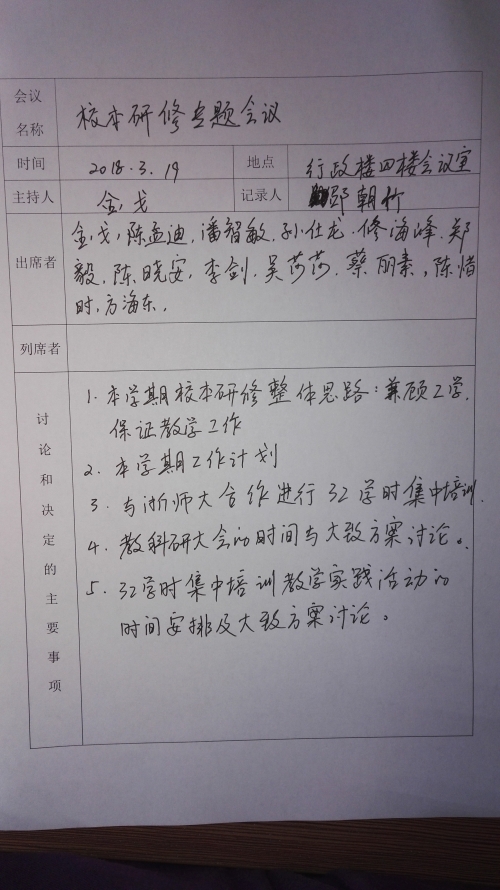 会议名称 校本研修专题会议
时间 2018.3.19 地点 行政楼四楼会议室
主持人 金戈 记录人 邵朝竹
出席者 金戈,陈孟迪,潘智敏,孙仕龙,修海峰,郑
毅,陈晓安,李剑,吴莎莎,蔡丽素,陈惜
时,方海东,
列席者
讨论和决定的主要事项
1. 本学期校本研修整体思路:兼顾工学,
保证教学工作
2. 本学期工作计划
3. 与浙师大合作进行32学时集中培训.
4. 教科研大会的时间与大致方案讨论。
5. 32学时集中培训教学实践活动的
时间安排及大致方案讨论。